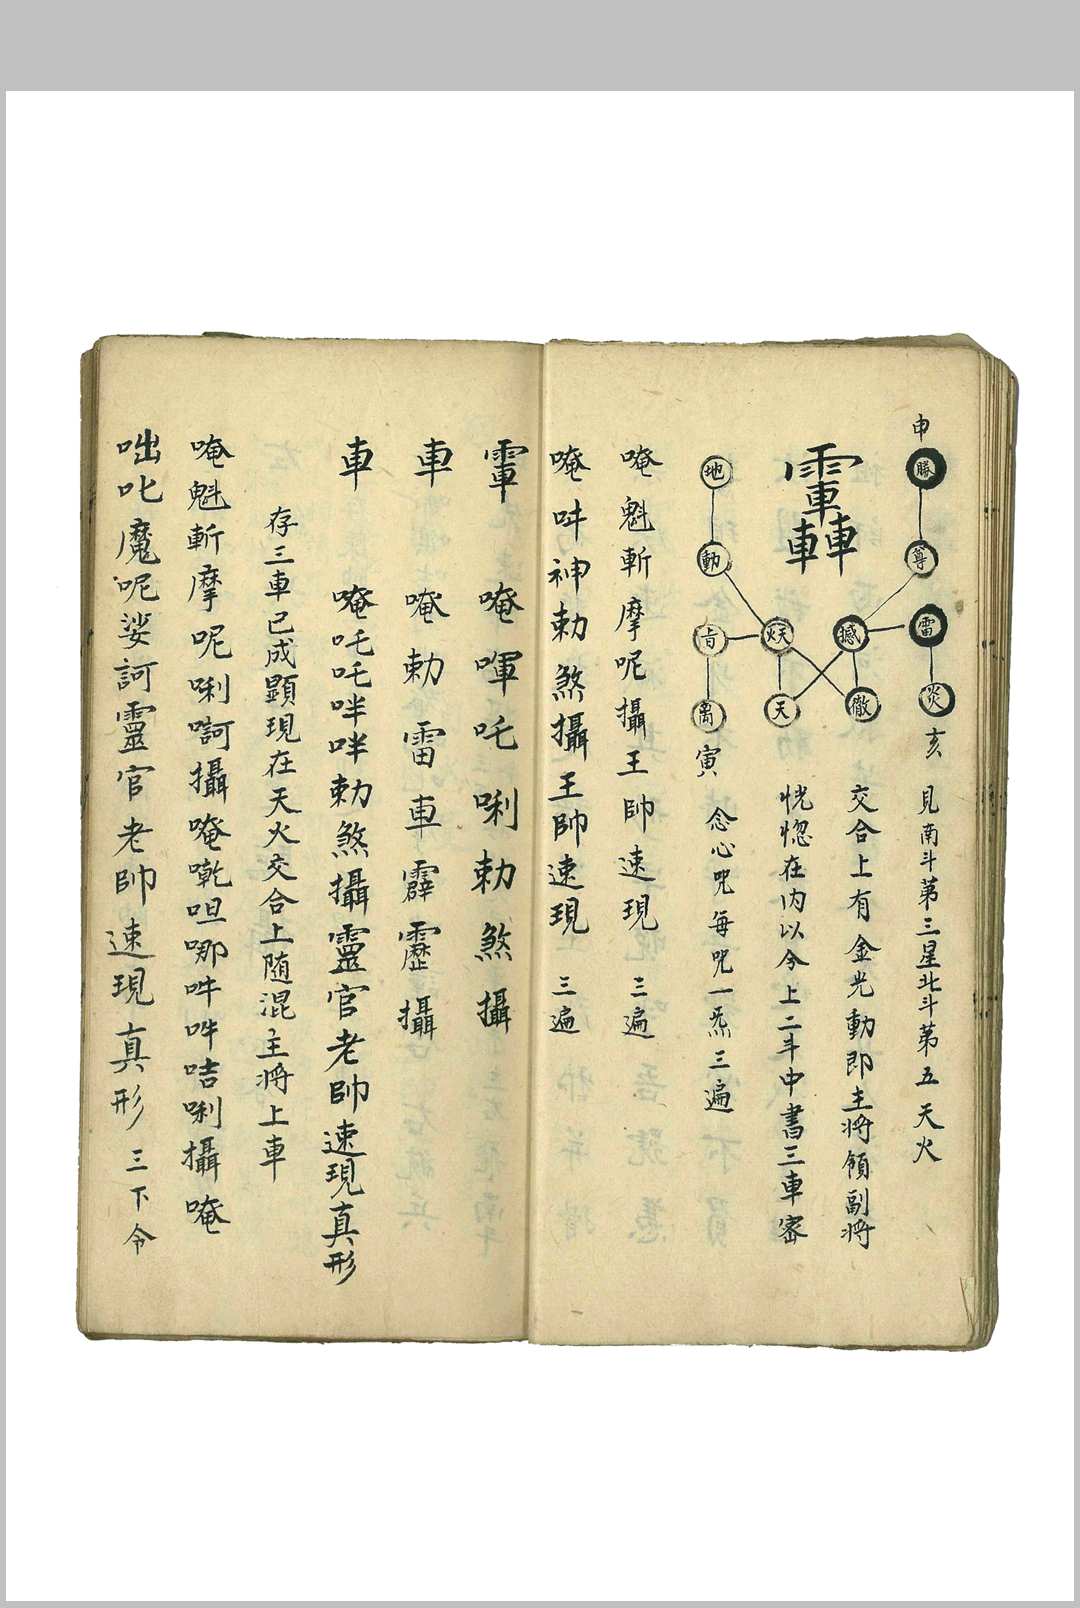 申
勝
尊
雷
炎
亥
見南斗第三星北斗第五天火
憾
徹
交合上有金光動即主將領副將
𩆷
車車
天
恍惚在内以今上二斗中書三車密
地
動
離
寅
念心咒每咒一炁三遍
唵魁斬摩呢攝王帥速現 三遍
唵吽神勅煞攝王帥速現 三遍
唵喗吒唎勅煞攝
車 唵勅雷車霹靂攝
車 唵吒吒哶哶勅煞攝靈官老帥速現真形
存三車已成顯現在天火交合上随混主将上車
唵魁斬摩呢唎㗿攝唵囋呾哪吽吽咭唎攝唵
咄叱魔呢娑訶靈官老帥速現真形 三下令